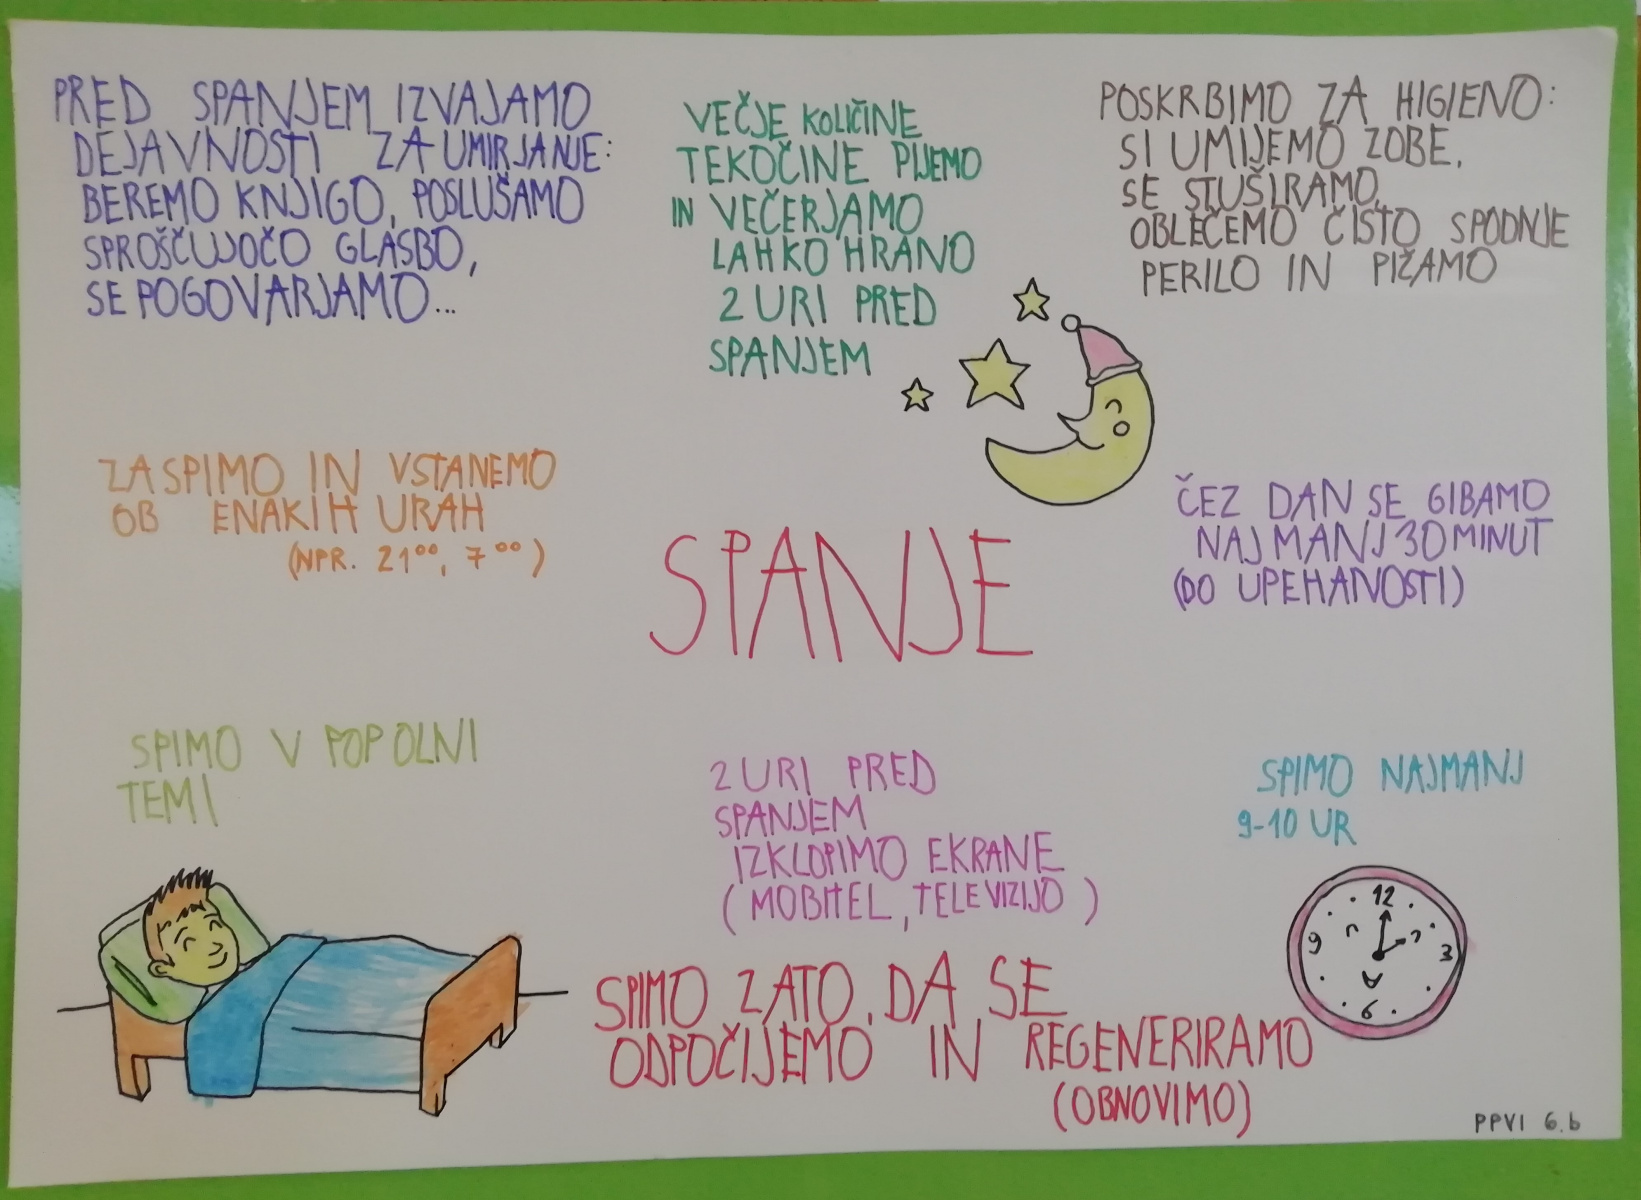 PRED SPANJEM IZVAJAMO
DEJAVNOSTI ZA UMIRJANJE:
BEREMO KNJIGO, POSLUŠAMO
SPROŠČUJOČO GLASBO,
SE POGOVARJAMO...
VEČJE KOLIČINE
TEKOČINE PIJEMO
IN VEČERJAMO
LAHKO HRANO
2 URI PRED
SPANJEM
POSKRBIMO ZA HIGIENO:
SI UMIJEMO ZOBE,
SE STUŠIRAMO,
OBLEČEMO ČISTO SPODNJE
PERILO IN PIŽAMO
ZASPIMO IN VSTANEMO
OB ENAKIH URAH
(NPR. 21⁰⁰, 7⁰⁰)
SPANJE
ČEZ DAN SE GIBAMO
NAJMANJ 30 MINUT
(DO UPEHANOSTI)
SPIMO V POPOLNI
TEMI
2 URI PRED
SPANJEM
IZKLOPIMO EKRANE
(MOBITEL, TELEVIZIJO)
SPIMO NAJMANJ
9-10 UR
12
9
3
6
SPIMO ZATO, DA SE
ODPOČIJEMO IN REGENERIRAMO
(OBNOVIMO)
PPVI 6.b